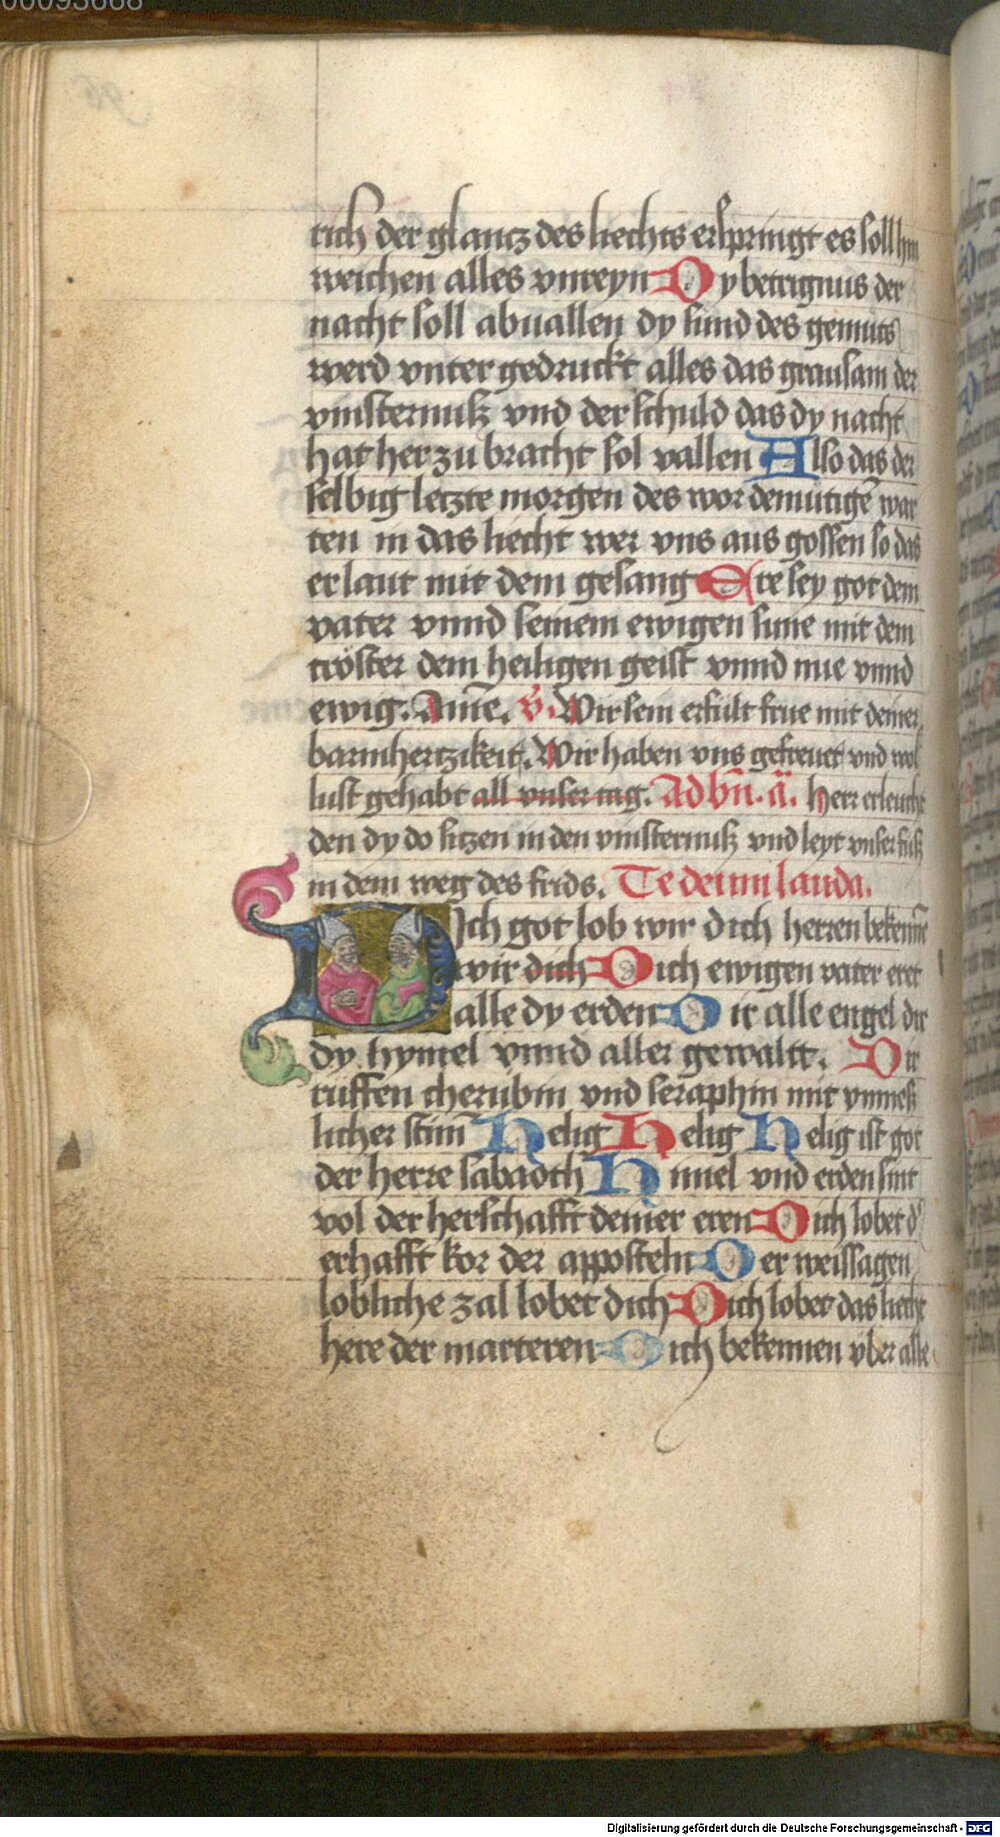 00093668
96
rich der glantz des liechts erspringt es soll hin
weichen alles vnreyn Dy betrignus der
nacht soll abuallen dy sund des gemuts
werd vnter gedruckt alles das grausam der
vinsternuß vnd der schuld das dy nacht
hat her zu bracht sol vallen Also das der
selbig letzte morgen des wor demutigē war
ten in das liecht wer vns aus gossen so das
er laut mit dem gesang Ere sey got dem
vater vnnd seinem ewigen sune mit dem
tröster dem heiligen geist vnnd nue vnnd
ewig. Amē. v. Wir sein erfult frue mit deiner
barmhertzikeit. Wir haben vns gefreuet vnd wol
lust gehabt all vnser tag. Ad bn̄. a. Herr erleucht
den dy do sitzen in den vinsternuß vnd leyt vnser fuß
in dem weg des frids. Te deum lauda.
Dich got lob wir dich herren bekenne
wir dich Dich ewigen vater eret
alle dy erden Dir alle engel dir
dy hymel vnnd aller gewaltt. Dir
ruffen cherubin vnd seraphin mit vnmeß
licher stim̄ Helig Helig Helig ist got
der herre sabaoth Himel vnd erden sint
vol der herschafft deiner eren Dich lobet d'
erhafft kor der apposteln Der weissagen
lobliche zal lobet dich Dich lobet das liecht
here der marteren Dich bekennen vber alle
Digitalisierung gefördert durch die Deutsche Forschungsgemeinschaft - DFG